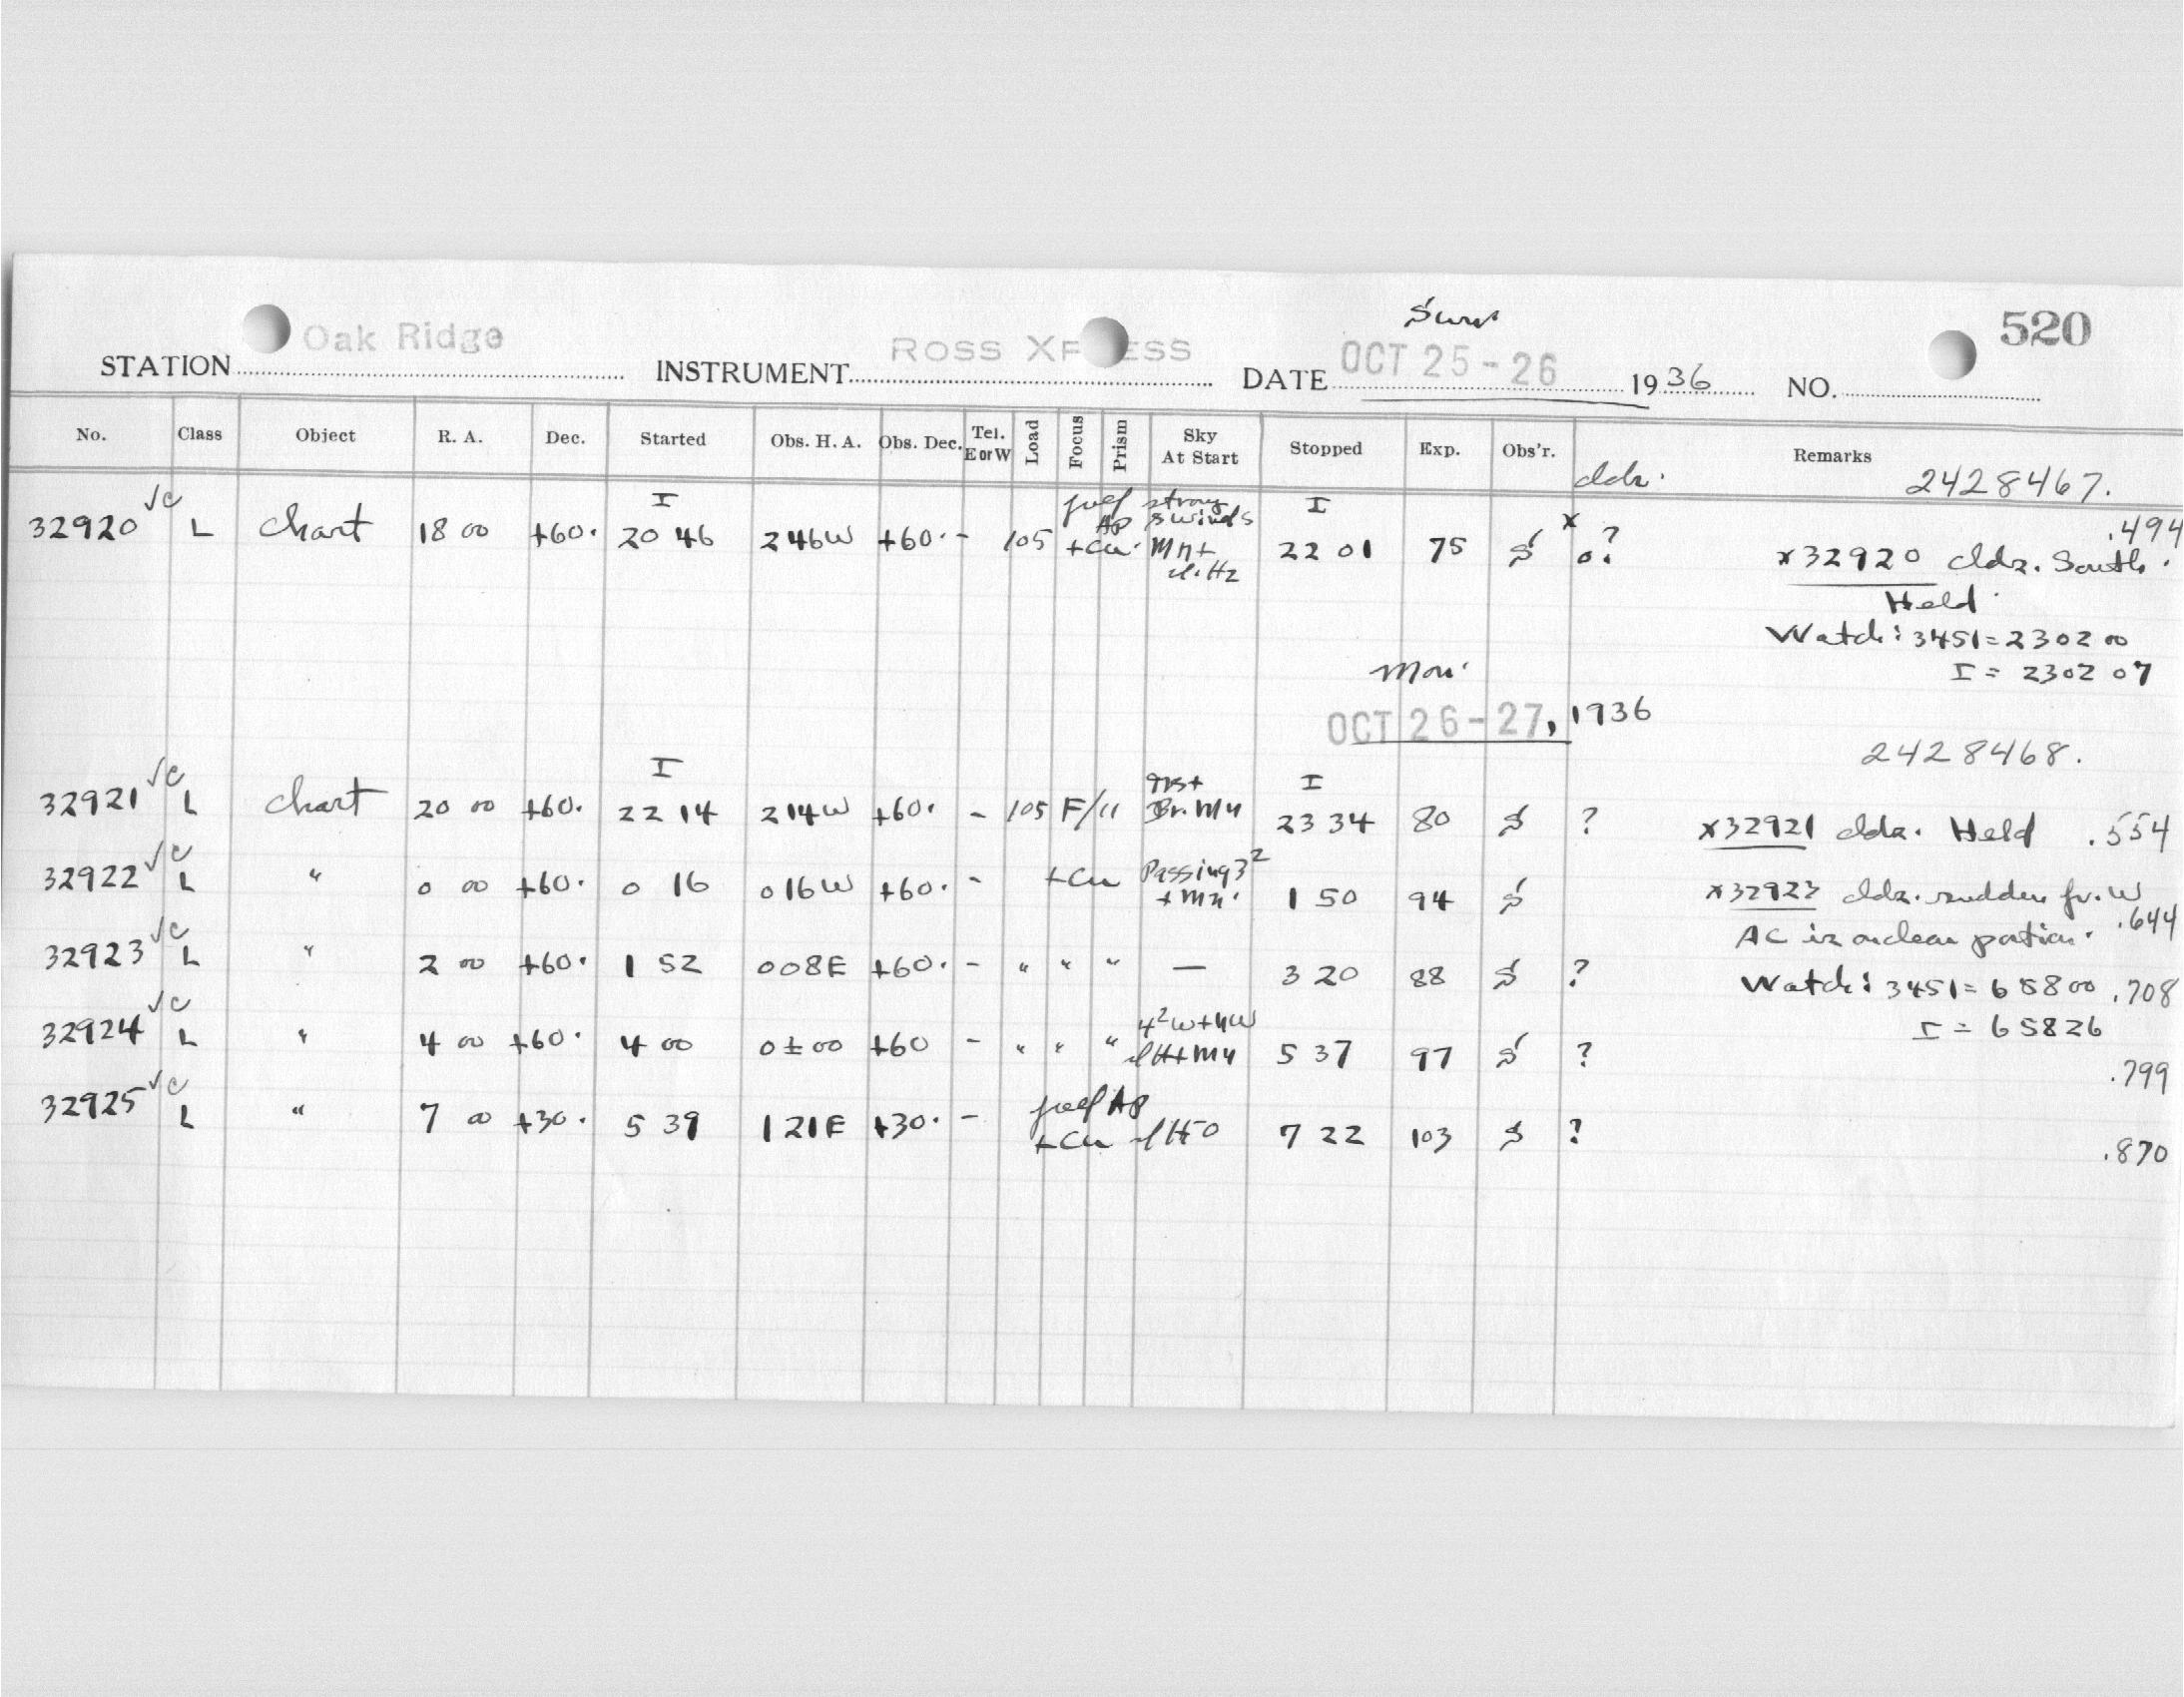 Sun 520
STATION Oak Ridge INSTRUMENT ROSS XPRESS DATE OCT 25-26 1936 NO.
No. Class Object R. A. Dec. Started Obs. H. A. Obs. Dec. Tel. E or W Load Focus Prism Sky At Start Stopped Exp. Obs'r. Remarks
2428467.
32920 √c L Chart 18 00 +60. I 20 46 246W +60. - 105 AP +Cu. strong S winds Mn+ I 22 01 75 S x o? .494
x32920 cldz. South.
Held
Watch: 3451 = 23 02 00
I = 23 02 07
Mon.
OCT 26-27, 1936
2428468.
32921 √c L Chart 20 00 +60. I 22 14 214W +60. - 105 F/11 Br. Mn I 23 34 80 S ? x32921 cldz. Held .554
32922 √c L " 0 00 +60. 0 16 016W +60. - +Cu Passing 3² + Mn. 1 50 94 S x32923 cldz. sudden fr. W .644
AC in portion.
32923 √c L " 2 00 +60. 1 52 008E +60. - " " " — 3 20 88 S ? Watch: 3451 = 65800 .708
I = 65826
32924 √c L " 4 00 +60. 4 00 0±00 +60 - " " " 4²W+NW +Mn 5 37 97 S ? .799
32925 √c L " 7 00 +30. 5 39 121E +30. - AP +Cu 7 22 103 S ? .870